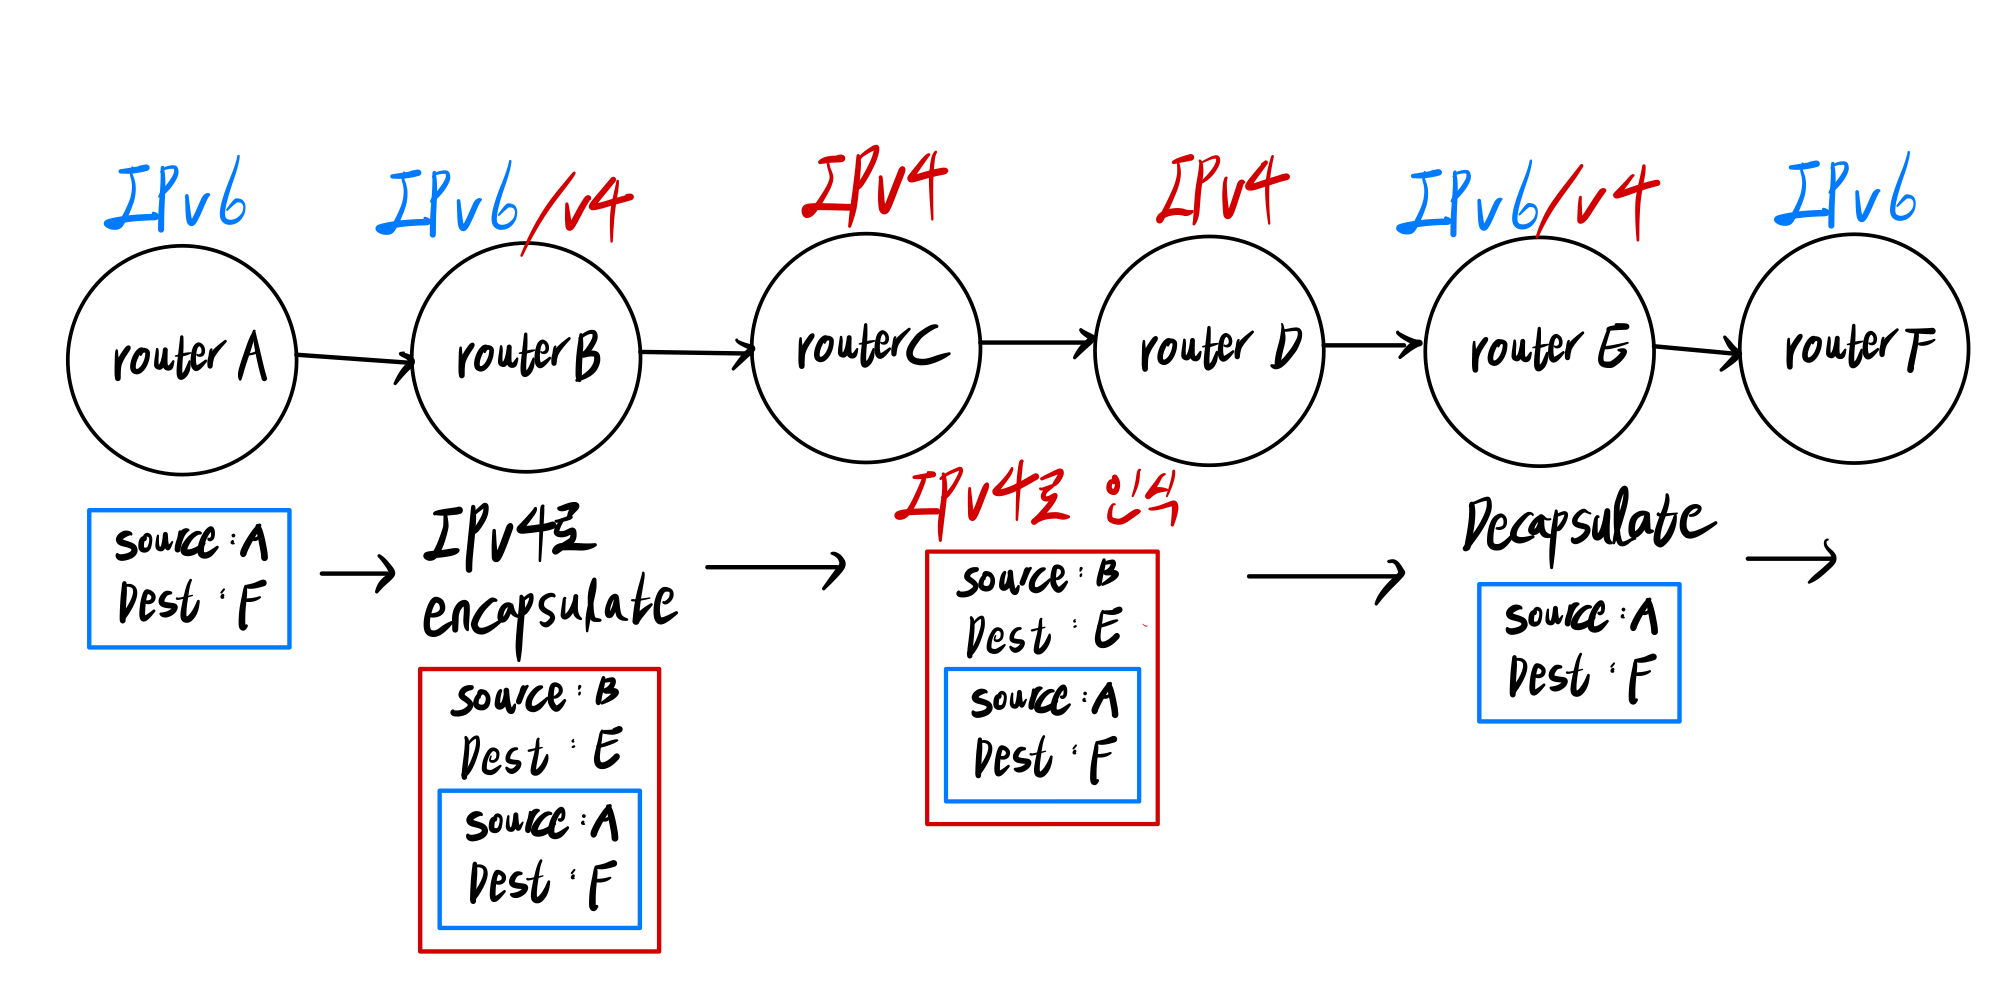 IPv6
IPv6/v4
IPv4
IPv4
IPv6/v4
IPv6
router A
router B
router C
router D
router E
router F
source : A
Dest : F
IPv4로
encapsulate
source : B
Dest : E
source : A
Dest : F
IPv4로 인식
source : B
Dest : E
source : A
Dest : F
Decapsulate
source : A
Dest : F